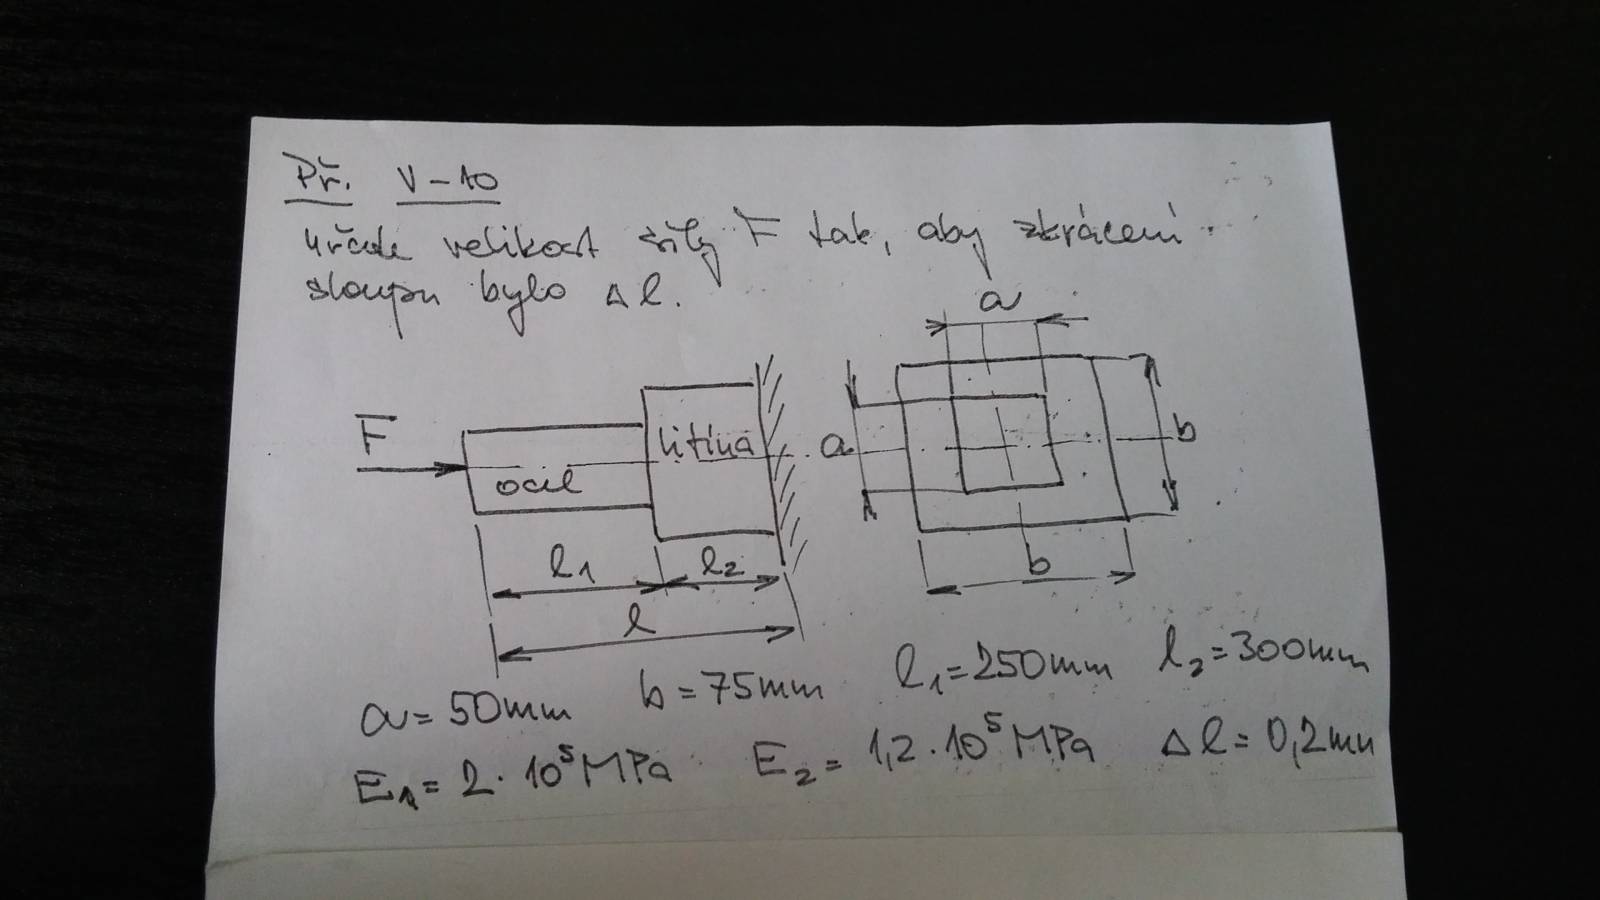 Př. V-10
určete velikost síly F tak, aby zkrácení
sloupu bylo Δl.
a
F
ocel
litina
a
b
l1
l2
b
l
a = 50mm b = 75mm l1 = 250mm l2 = 300mm
E1 = 2 · 10⁵ MPa E2 = 1,2 · 10⁵ MPa Δl = 0,2mm